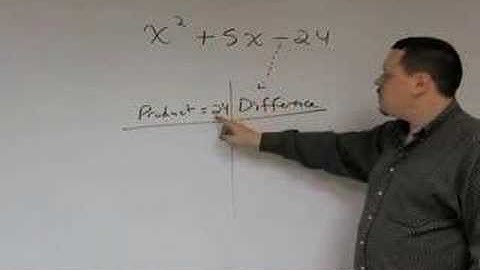 x² + 5x - 24
Product = 24 Difference